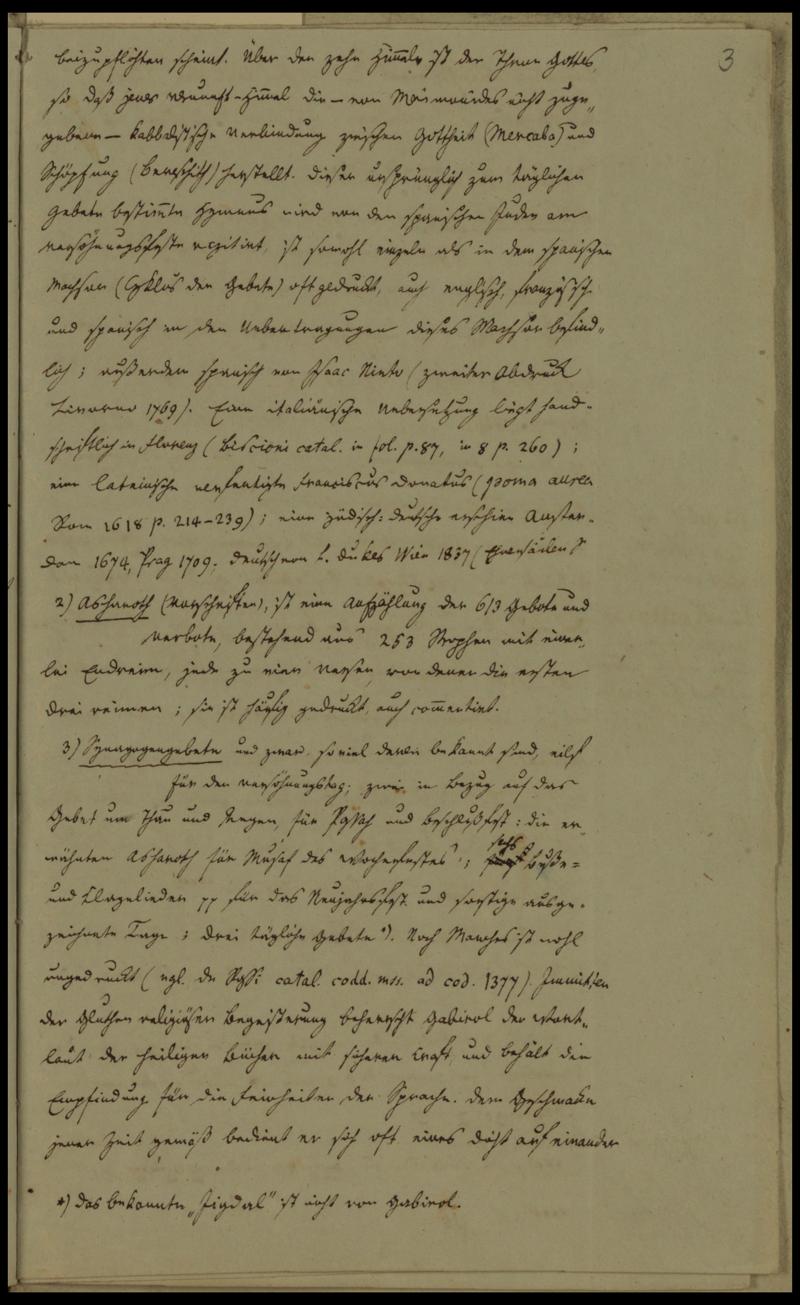 3
beizupflichten scheint. Über den zehn Him̄eln ist der Thron Gottes,
so daß jener Vernunft-Him̄el die – von Maimonides nicht zuge„
gebene – kabbalistische Verbindung zwischen Gottheit (Mercaba) und
Schöpfung (Bereschith) herstellt. Dieser ursprünglich zum täglichen
Gebete bestim̄te Hymnus wird von den spanischen Juden am
Versöhnungsfeste rezitirt, ist sowohl einzeln als in dem spanischen
Machsor (Cyklus der Gebete) oft gedruckt, auch englisch, französisch
und spanisch in den Uebertragungen dieses Machsor befind„
lich; außerdem spanisch von Isaac Nieto (zweiter Abdruck
Livorno 1769). Eine italiänische Uebersetzung liegt hand-
schriftlich in Florenz (Biscioni catal. in fol. p. 87, in 8 p. 260);
eine lateinische verfertigte Franciscus Donatus (poma aurea
Rom 1618 p. 214–239); eine jüdisch-deutsche erschien Amster-
dam 1674, Prag 1709; deutsch von L. Dukes Wien 1837 (Ehrensäulen
2) Asharoth (Vorschriften), ist eine Aufzählung der 613 Gebote und
Verbote, bestehend aus 253 Strophen mit einer„
lei Endreim, jede zu vier Versen, von denen die ersten
drei reimen; sie ist häufig gedruckt, auch com̄entirt.
3) Synagogengebete und zwar, soviel deren bekannt sind, eilf
für den Versöhnungstag; zwei in Bezug auf das
Gebet um Thau und Regen, für Passah und Beschlußfest: die er
wähnten Asharoth für Mussaf des Wochenfestes; sechs Buße-
und Klagelieder pp für das Neujahrsfest und sonstige ausge-
zeichnete Tage; drei tägliche Gebete *). Noch Manches ist wohl
ungedruckt (vgl. de Rossi catal. codd. mss. ad cod. 1377). Inmitten
der Gluthen religiöser Begeisterung beherrscht Gabirol den Wort„
laut der heiligen Bücher mit sicherer Kraft, und behält die
Empfindung für die Feinheiten der Sprache. Dem Geschmacke
jener Zeit gemäß bedient er sich oft eines dicht auf einander
*) Das bekannte „Jigdal" ist nicht von Gabirol.